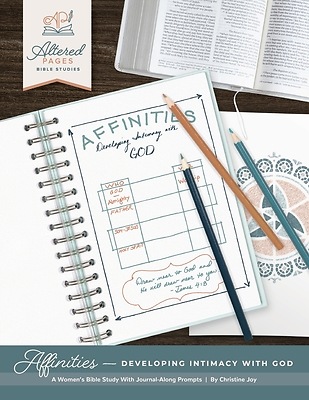 AP
Altered
PAGES
BIBLE STUDIES
AFFINITIES
Developing Intimacy with
GOD
WHO
GOD
Almighty
FATHER
SON-JESUS
Draw near to God and
He will draw near to you
- James 4:8
Affinities — DEVELOPING INTIMACY WITH GOD
A Women's Bible Study With Journal-Along Prompts | By Christine Joy